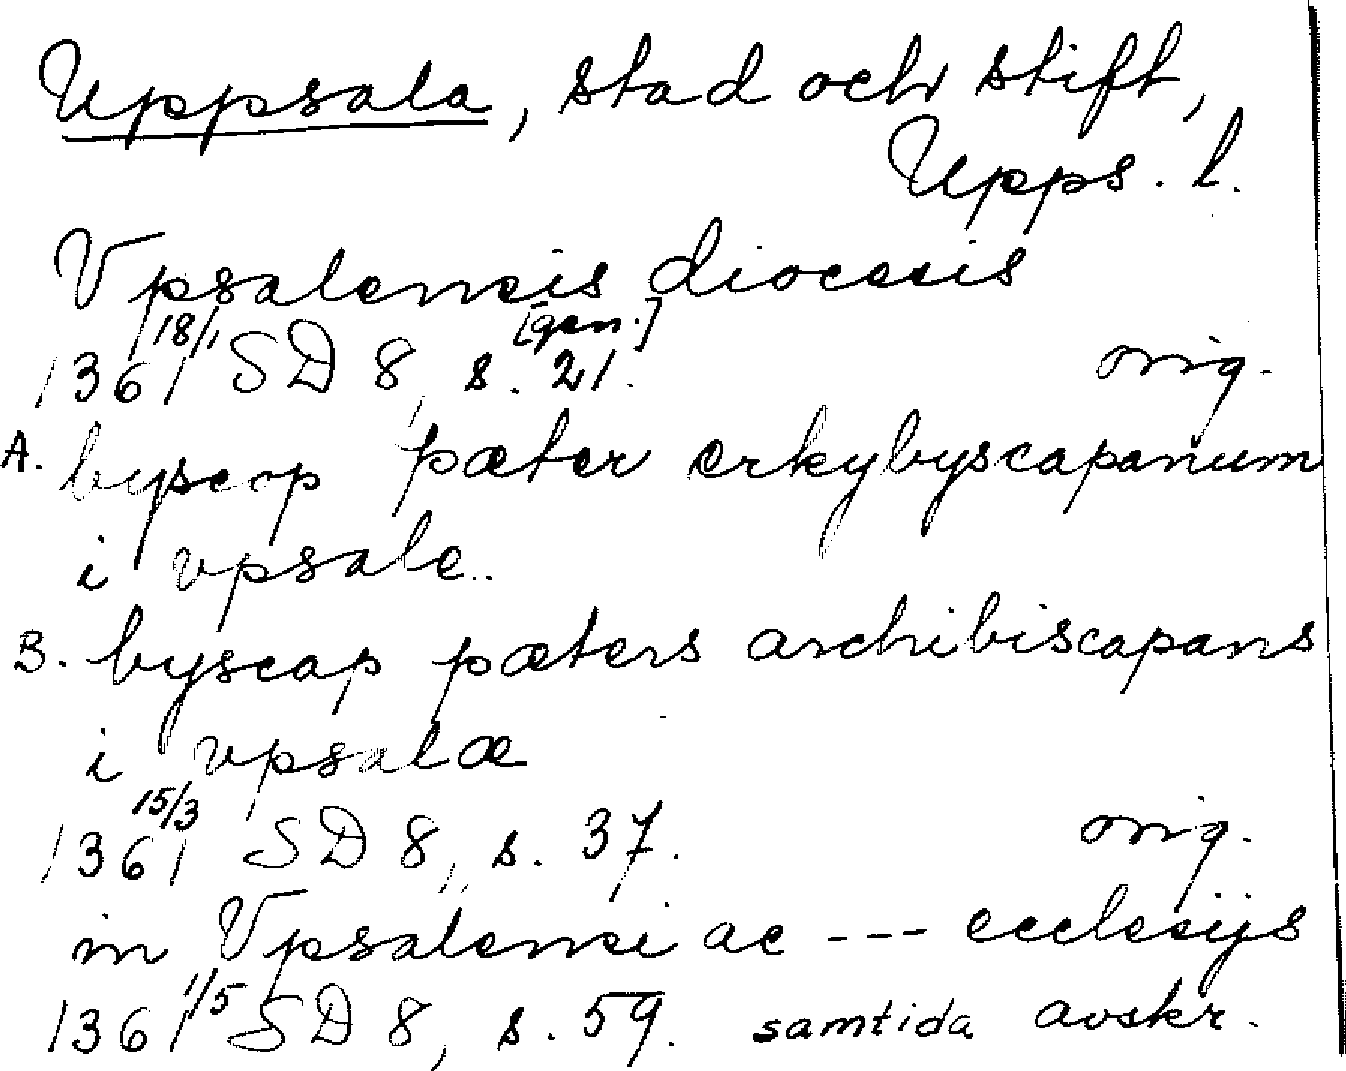 Uppsala, stad och stift,
Upps. l.
Vpsalensis diocesis
[gen.]
1361 18/1 SD 8, s. 21. orig.
A. byscop pæter erkybyscapanum
i vpsale..
B. byscap pæters archibiscapans
i vpsalæ
1361 15/3 SD 8, s. 37. orig.
in Vpsalensi ac --- ecclesijs
1361 1/5 SD 8, s. 59. samtida avskr.